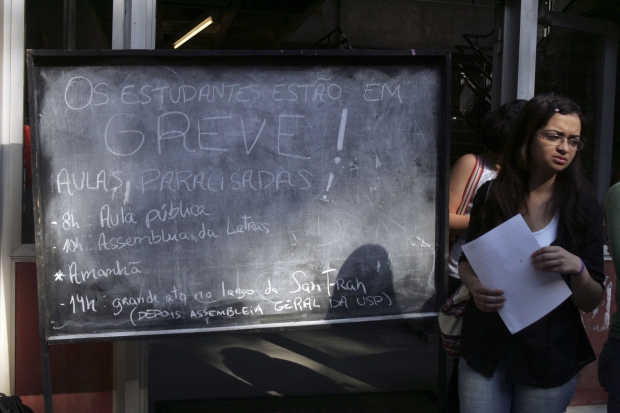 OS ESTUDANTES ESTÃO EM
GREVE!
AULAS PARALISADAS!
- 8h: Aula pública
Assembleia da Letras
* Amanhã
- 14h: grande ato no largo da San Fran
(DEPOIS ASSEMBLEIA GERAL DA USP)